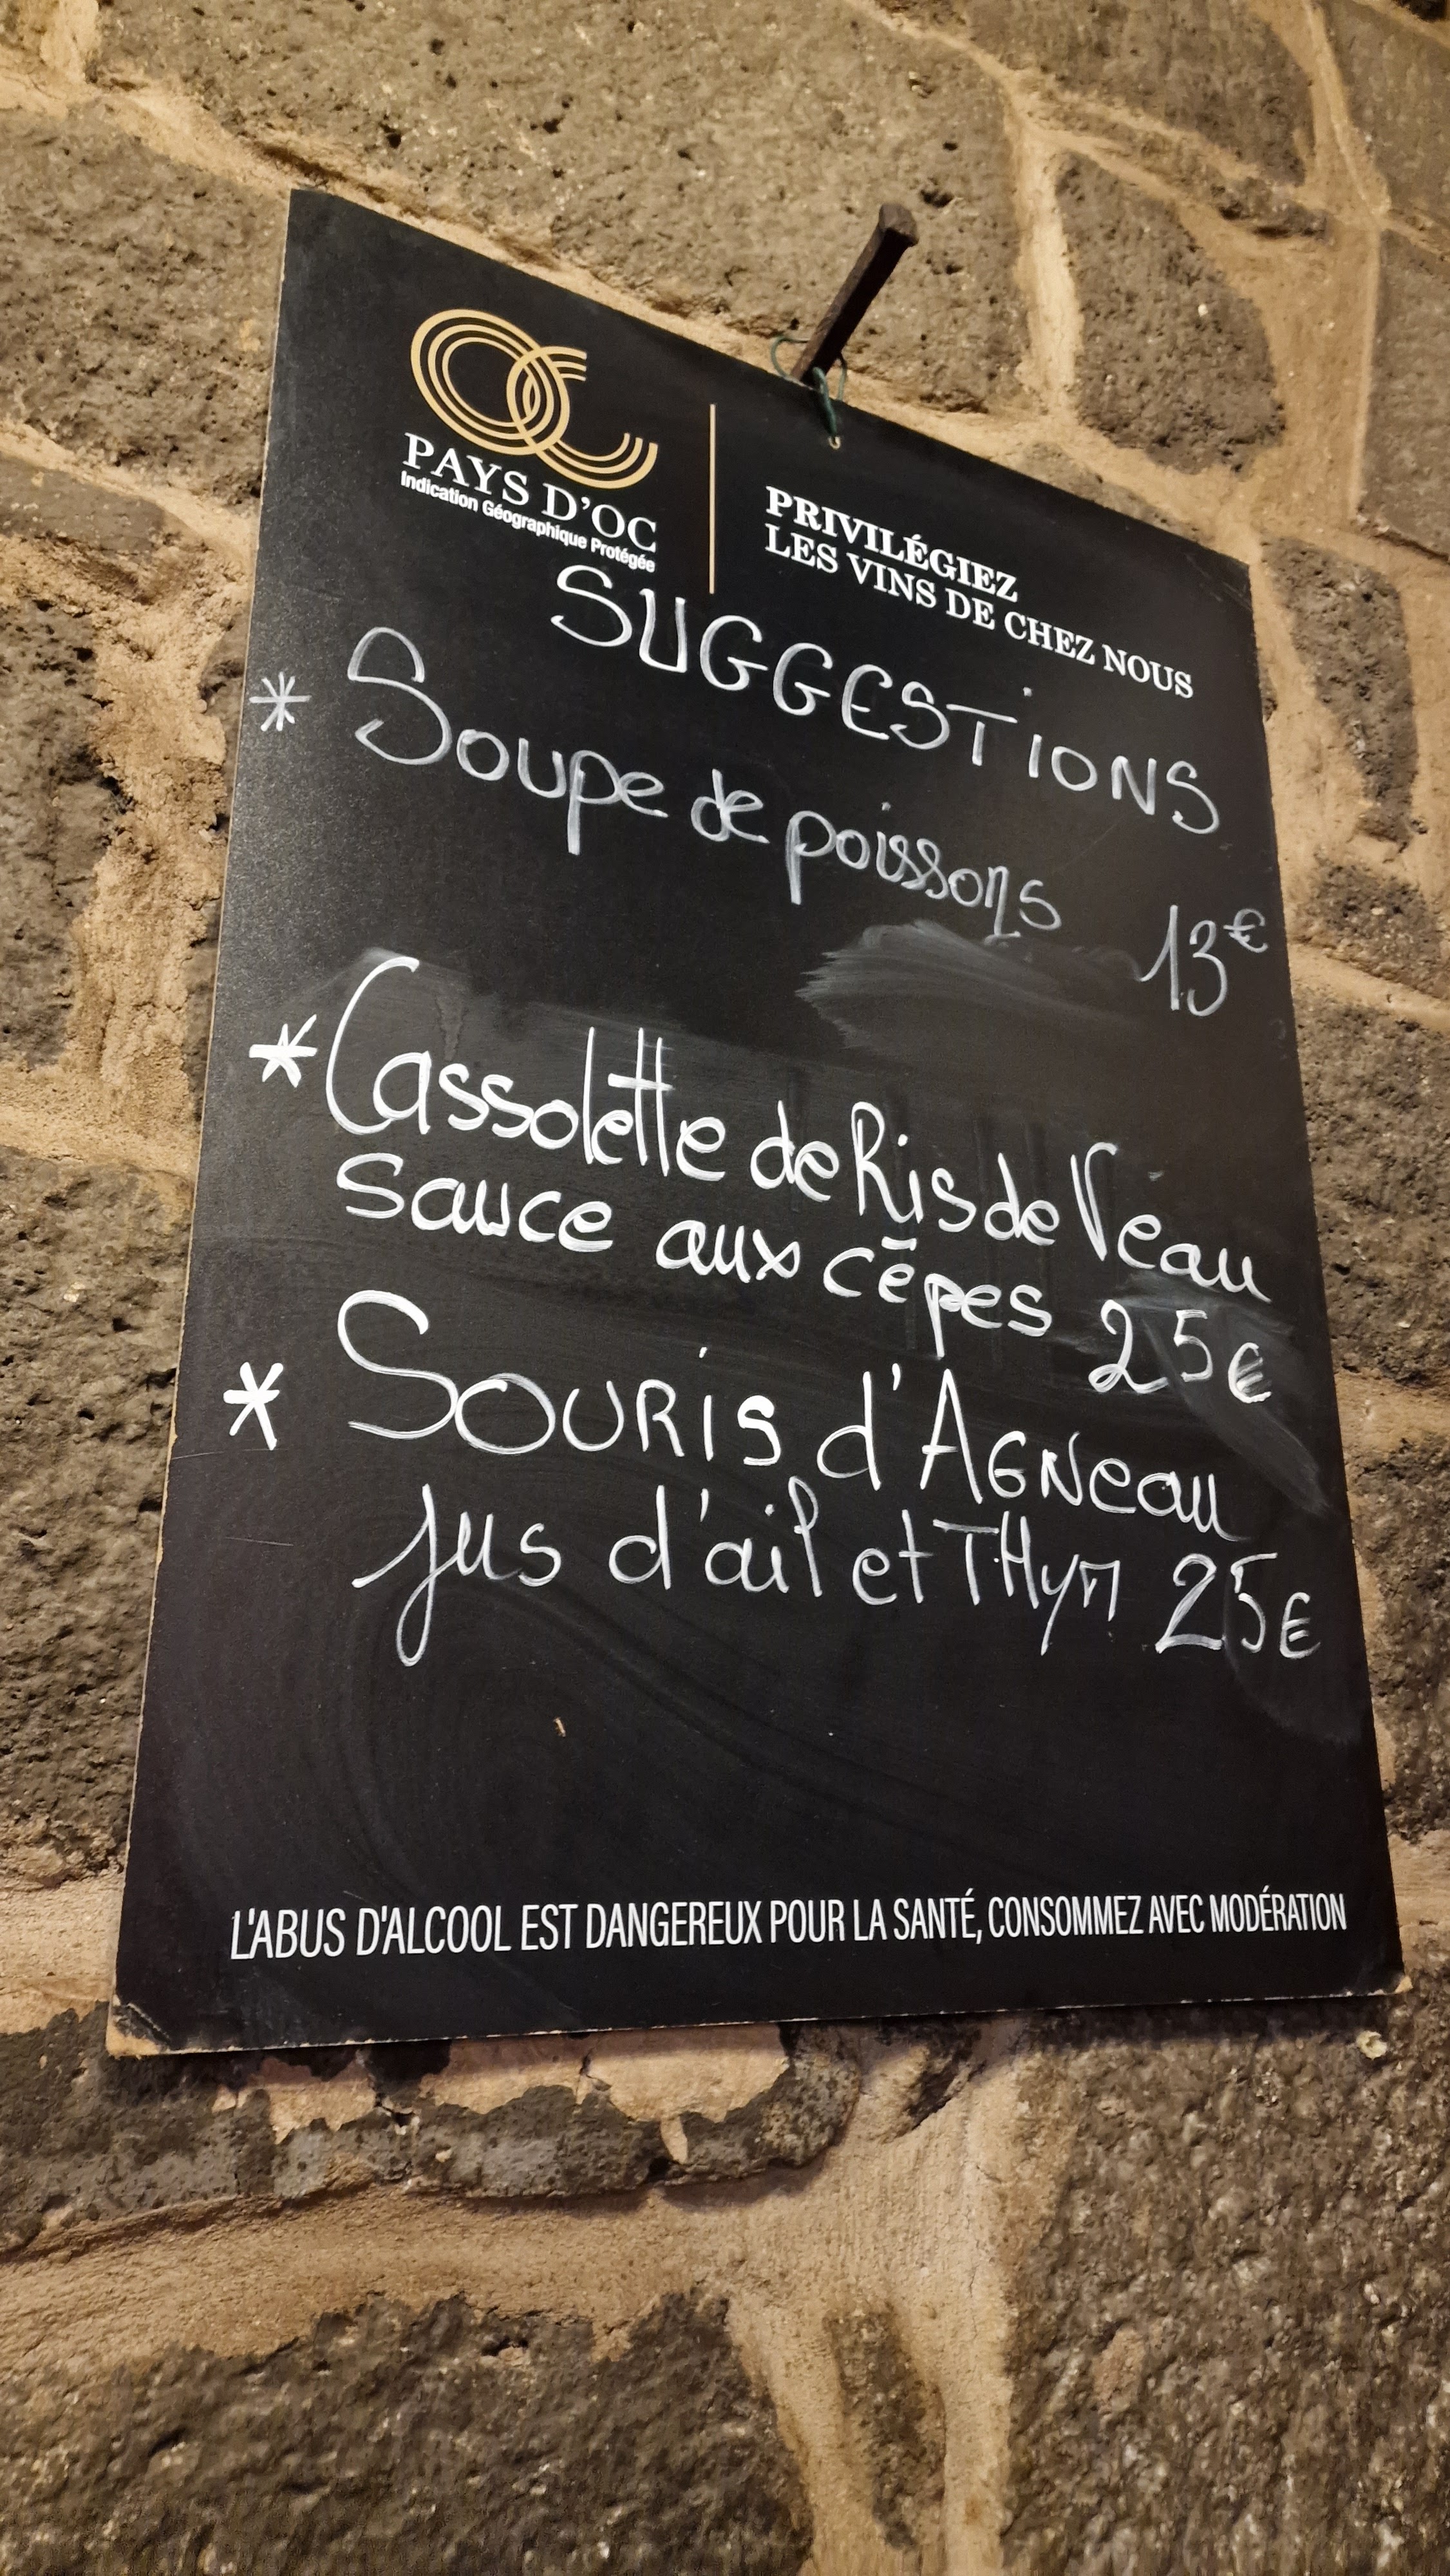 OC
PAYS D'OC
Indication Géographique Protégée
PRIVILÉGIEZ
LES VINS DE CHEZ NOUS
SUGGESTIONS
* Soupe de poissons
13€
* Cassolette de Ris de Veau
sauce aux cēpes 25€
* SOURIS d'AGNeau
jus d'ail et THym 25€
L'ABUS D'ALCOOL EST DANGEREUX POUR LA SANTÉ, CONSOMMEZ AVEC MODÉRATION